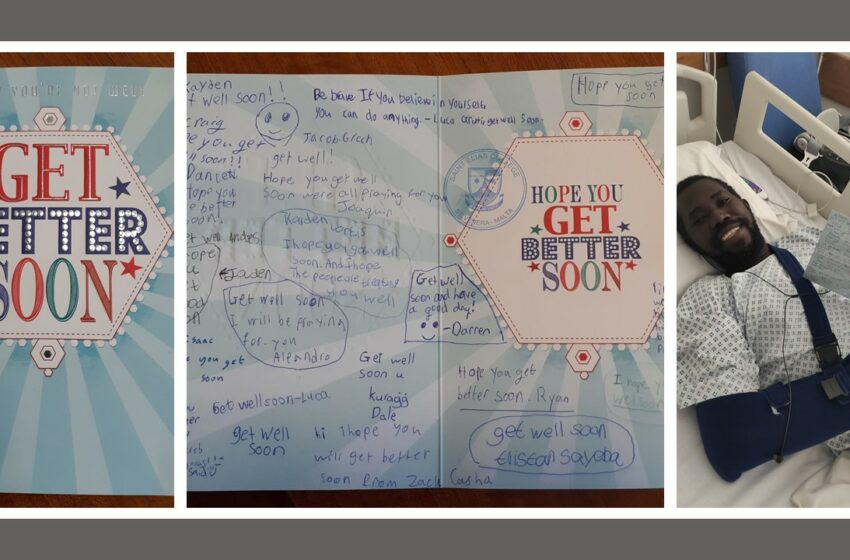 YOU'RE NOT WELL
GET
BETTER
SOON
Kayden
t well soon!!
Craig
e you get
ll soon!!
Daniel
Hope you
e better
soon!
et well Andres
hope
u
Jayden
isaac
e you get
soon
Be brave If you believe in yourself
you can do anything. - Luca Caruti get well soon.
Jacob Grech
get well!
Hope you get well
soon we're all praying for you
Joaquin
Kaiden
I hope you get well
soon. And I hope
The people are treating
you well
Get well soon
I will be praying
for you
Alexandro
Get well soon - Luca
get well
soon
Get well
soon u
kuragg
Dale
hi i hope you
will get better
soon from Zack Casha
Get well
soon and have
a good day!
- Darren
Hope you get
soon
SAINT ELIAS COLLEGE
MALTA
HOPE YOU
GET
BETTER
SOON
Hope you get
better soon. Ryan
get well soon
tristan sayoba
I hope yo
well soon